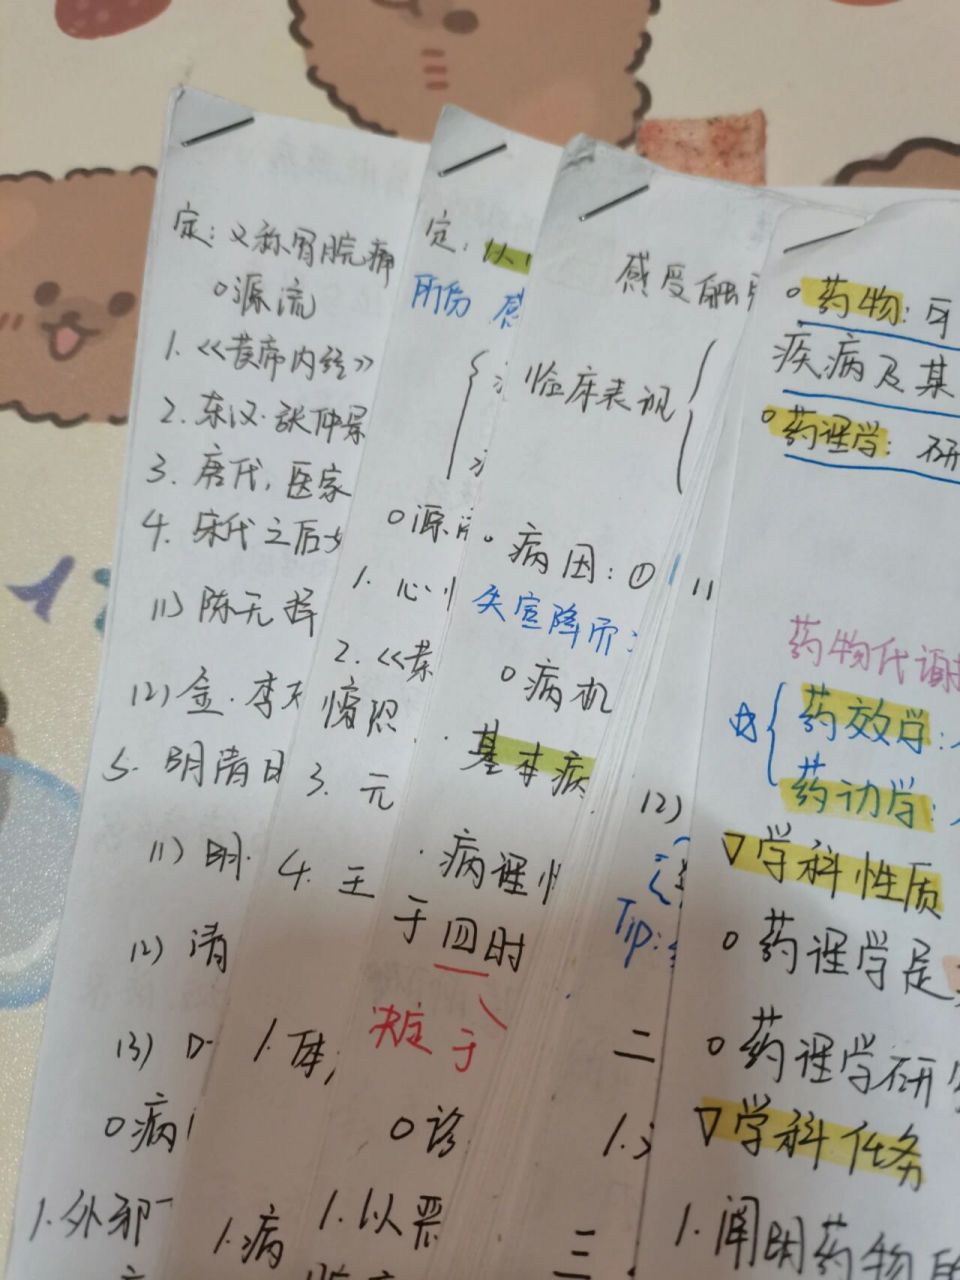 定：又称胃脘痛
源流
1.《黄帝内经》
2. 东汉·张仲景
3. 唐代，医家
4. 宋代之后
11) 陈无择
12) 金·李
5. 明清
11) 明·
12) 清
13)
病
1. 外邪
定：以
所伤 感
源
1. 心
2.《黄
惰
3. 元
4. 王
1. 体
1. 病
感受
临床表现
病因：①
失宣降而
病机
基本病
病理
于四时
决定于
诊
1. 以恶
11
12)
Tip:
二
1.
三
药物：
疾病及某
药理学：研
药物代谢
药效学：
药动学：
▽学科性质
药理学是
药理学研
▽学科任务
1. 阐明药物的